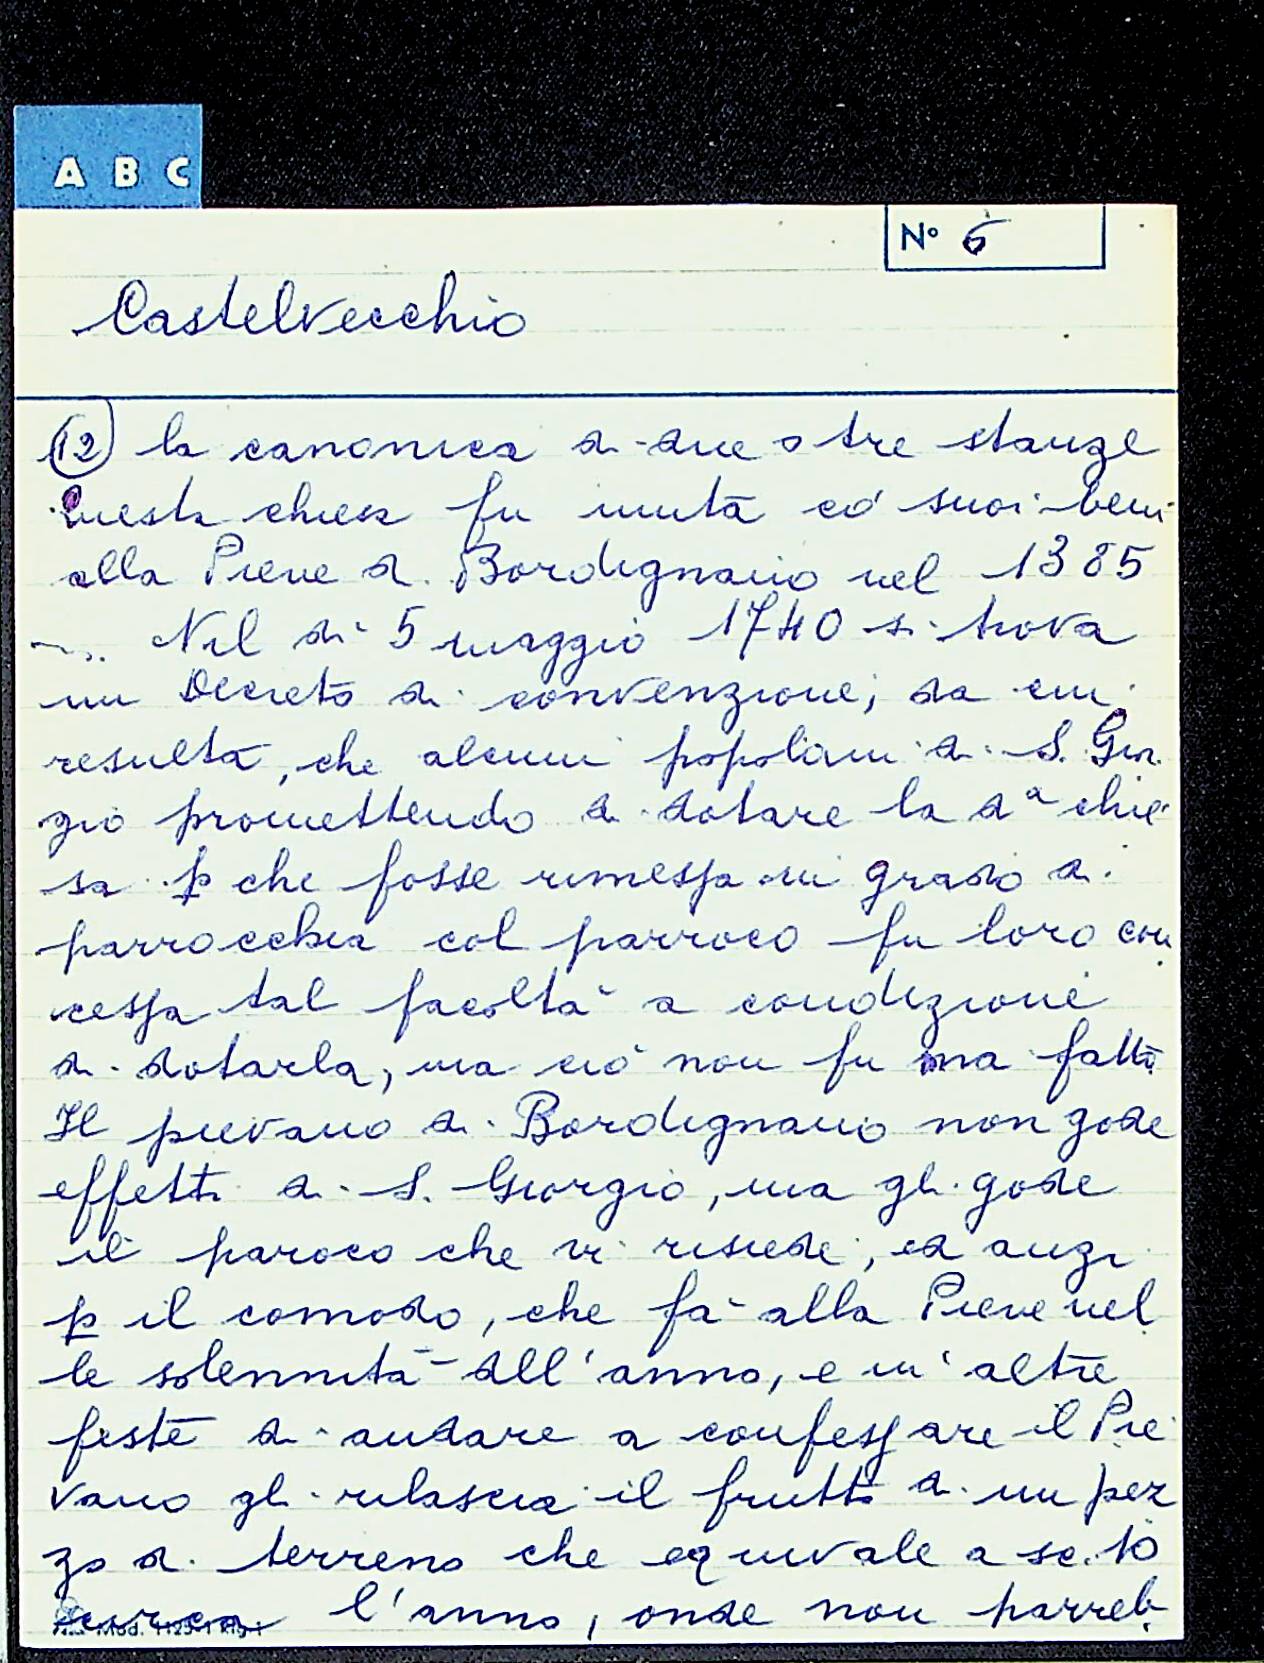 A B C
N° 6
Castelvecchio
(12) la canonica di due o tre stanze
Questa chiesa fu unita co' suoi beni
alla Pieve di Bordignano nel 1385
.... Nel dì 5 maggio 1740 si trova
un Decreto di convenzione, da cui
resulta, che alcuni popolani di S. Gior
gio promettendo di dotare la da chie
sa p che fosse rimessa in grado di
parrocchia col parroco fu loro con
cessa tal facoltà a condizione
di dotarla, ma ciò non fu mai fatto
Il pievano di Bordignano non gode
effetti di S. Giorgio, ma gli gode
il paroco che vi risiede, ed anzi
p il comodo, che fà alla Pieve nel
le solennità dell'anno, e in altre
feste di andare a confessare il Pie
vano gli rilascia il frutto di un pez
zo di terreno che equivale a sc. 10
circa l'anno, onde non parreb